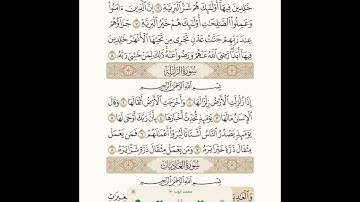 خَٰلِدِينَ فِيهَآ أُوْلَٰٓئِكَ هُمْ شَرُّ ٱلْبَرِيَّةِ ۝ إِنَّ ٱلَّذِينَ ءَامَنُواْ
وَعَمِلُواْ ٱلصَّٰلِحَٰتِ أُوْلَٰٓئِكَ هُمْ خَيْرُ ٱلْبَرِيَّةِ ۝ جَزَآؤُهُمْ
عِندَ رَبِّهِمْ جَنَّٰتُ عَدْنٍ تَجْرِى مِن تَحْتِهَا ٱلْأَنْهَٰرُ خَٰلِدِينَ
فِيهَآ أَبَدًا رَّضِىَ ٱللَّهُ عَنْهُمْ وَرَضُواْ عَنْهُ ذَٰلِكَ لِمَنْ خَشِىَ رَبَّهُۥ ۝
سُورَةُ ٱلزَّلْزَلَةِ
بِسْمِ ٱللَّهِ ٱلرَّحْمَٰنِ ٱلرَّحِيمِ
إِذَا زُلْزِلَتِ ٱلْأَرْضُ زِلْزَالَهَا ۝ وَأَخْرَجَتِ ٱلْأَرْضُ أَثْقَالَهَا ۝ وَقَالَ
ٱلْإِنسَٰنُ مَا لَهَا ۝ يَوْمَئِذٍ تُحَدِّثُ أَخْبَارَهَا ۝ بِأَنَّ رَبَّكَ أَوْحَىٰ لَهَا ۝
يَوْمَئِذٍ يَصْدُرُ ٱلنَّاسُ أَشْتَاتًا لِّيُرَوْاْ أَعْمَٰلَهُمْ ۝ فَمَن يَعْمَلْ
مِثْقَالَ ذَرَّةٍ خَيْرًا يَرَهُۥ ۝ وَمَن يَعْمَلْ مِثْقَالَ ذَرَّةٍ شَرًّا يَرَهُۥ ۝
سُورَةُ ٱلْعَادِيَاتِ
بِسْمِ ٱللَّهِ ٱلرَّحْمَٰنِ ٱلرَّحِيمِ
محمد أيوب